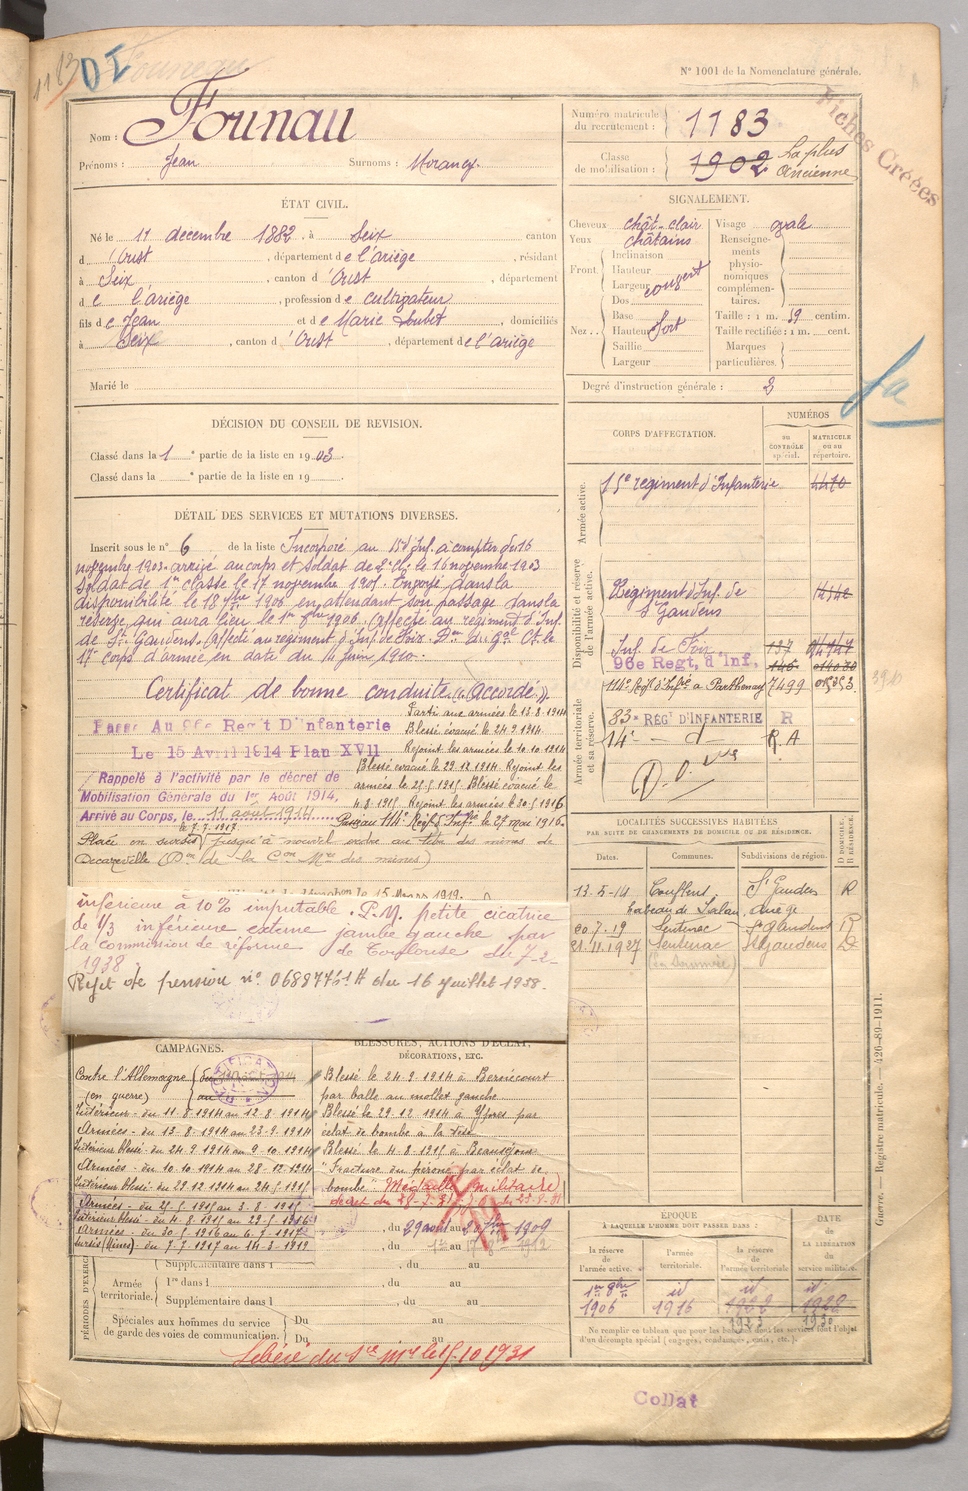 1183
DI
Founeau
N° 1001 de la Nomenclature générale.
Fiches Créées
Nom : Founau
Prénoms : Jean Surnoms : Mirancy
Numéro matricule du recrutement : 1183
Classe de mobilisation : 1902 La plus ancienne
ÉTAT CIVIL.
Né le 11 décembre 1882, à Seix canton
d'Oust, département de l'ariège, résidant
à Seix, canton d'Oust, département
de l'ariège, profession de cultivateur
fils de Jean et de Marie Soubet, domiciliés
à Seix, canton d'Oust, département de l'ariège
Marié le
SIGNALEMENT.
Cheveux chât-clair
Yeux châtains
Front Inclinaison Hauteur Largeur Dos couvert
Nez Base Hauteur Saillie Largeur fort
Visage ovale
Renseignements physionomiques complémentaires.
Taille : 1 m. 59 centim.
Taille rectifiée : 1 m. cent.
Marques particulières.
Degré d'instruction générale : 3
fa
DÉCISION DU CONSEIL DE REVISION.
Classé dans la 1e partie de la liste en 1903.
Classé dans la e partie de la liste en 19 .
DÉTAIL DES SERVICES ET MUTATIONS DIVERSES.
Inscrit sous le n° 6 de la liste Incorporé au 15e d'Inf. à compter du 16
novembre 1903. arrivé au corps et soldat de 2e Cl. le 16 novembre 1903
Soldat de 1re classe le 17 novembre 1905. Envoyé dans la
disponibilité le 18 7bre 1906 en attendant son passage dans la
réserve qui aura lieu le 1er 8bre 1906. Affecté au régiment d'Inf.
de St Gaudens. Affecté au régiment d'Inf. de Foix. Don du Gal Ct le
17e corps d'armée en date du 14 juin 1910.
Certificat de bonne conduite "Accordé".
Passé Au 96e Reg't D'infanterie
Le 15 Avril 1914 Plan XVII
Rappelé à l'activité par le décret de
Mobilisation Générale du 1er Août 1914,
Arrivé au Corps, le 11 août 1914
Parti aux armées le 13.8.1914
Blessé évacué le 24.9.1914.
Rejoint les armées le 10.10.1914
Blessé évacué le 29.12.1914. Rejoint les
armées le 25.5.1915. Blessé évacué le
4.8.1915. Rejoint les armées le 30.5.1916
Passé au 114e Regt d'Inf. le 27 mai 1916.
le 7.7.1917
Placé en sursis jusqu'à nouvel ordre au titre des mines de
Decazeville
le 15 Mars 1919.
inférieure à 10% imputable. P.M. petite cicatrice
de 1/3 inférieure externe jambe gauche par
la commission de réforme de Toulouse du 7-2-
1938
Rejet de pension n° du 16 Juillet 1938.
CORPS D'AFFECTATION.
NUMÉROS
au CONTRÔLE spécial.
MATRICULE ou au répertoire.
Armée active.
15e régiment d'Infanterie 4470
Disponibilité et réserve de l'armée active.
Régiment d'Inf. de St Gaudens
Inf. de Foix 137
96e Regt, d'Inf.
114e Regt d'Infie à Parthenay 7499 015353
Armée territoriale et sa réserve.
83e RÉGt D'INFANTERIE R
14e - d R.A
LOCALITÉS SUCCESSIVES HABITÉES
PAR SUITE DE CHANGEMENTS DE DOMICILE OU DE RÉSIDENCE.
Dates. Communes. Subdivisions de région. D DOMICILE. R RÉSIDENCE.
13-5-14 Couflens St Gaudens R
hameau de Salau, ariège
20.7.19 Sentenac St Gaudens R
21.11.1927 Sentenac St Gaudens D
CAMPAGNES.
Contre l'Allemagne
(en guerre)
Intérieur - du 11.8.1914 au 12.8.1914
Armées - du 13.8.1914 au 23.9.1914
Intérieur blessé - du 24.9.1914 au 9.10.1914
Armées - du 10.10.1914 au 28.12.1914
Intérieur blessé - du 29.12.1914 au 24.5.1915
Armées - du 25.5.1915 au 3.8.1915
Intérieur blessé - du 4.8.1915 au 29.5.1916
Armées - du 30.5.1916 au 6.7.1917
sursis (Mines) - du 7.7.1917 au 14.3.1919
BLESSURES, ACTIONS D'ÉCLAT,
DÉCORATIONS, ETC.
Blessé le 24-9-1914 à
par balle au mollet gauche.
Blessé le 29.12.1914 à Ypres par
éclat de bombe à la tête
Blessé le 4-8-1915 à Beauséjour
"Fracture du péroné par éclat de
bombe" Médaille militaire
, du 29 avril au 1909
, du au 1912
PÉRIODES D'EXERCICES
Supplémentaire dans l , du au
Armée territoriale. 1re dans l , du au
Supplémentaire dans l , du au
Spéciales aux hommes du service de garde des voies de communication. Du au
Du au
Libéré du sce mre le 15.10.1931
ÉPOQUE
À LAQUELLE L'HOMME DOIT PASSER DANS :
la réserve de l'armée active. l'armée territoriale. la réserve de l'armée territoriale
DATE de LA LIBÉRATION du service militaire.
1er 8bre id id id
1906 1916 1922 1928
1923 1930
Ne remplir ce tableau que pour les hommes dont les services font l'objet
d'un décompte spécial (engagés, condamnés, omis, etc.).
Guerre. — Registre matricule. — 426-89-1911.
Collat